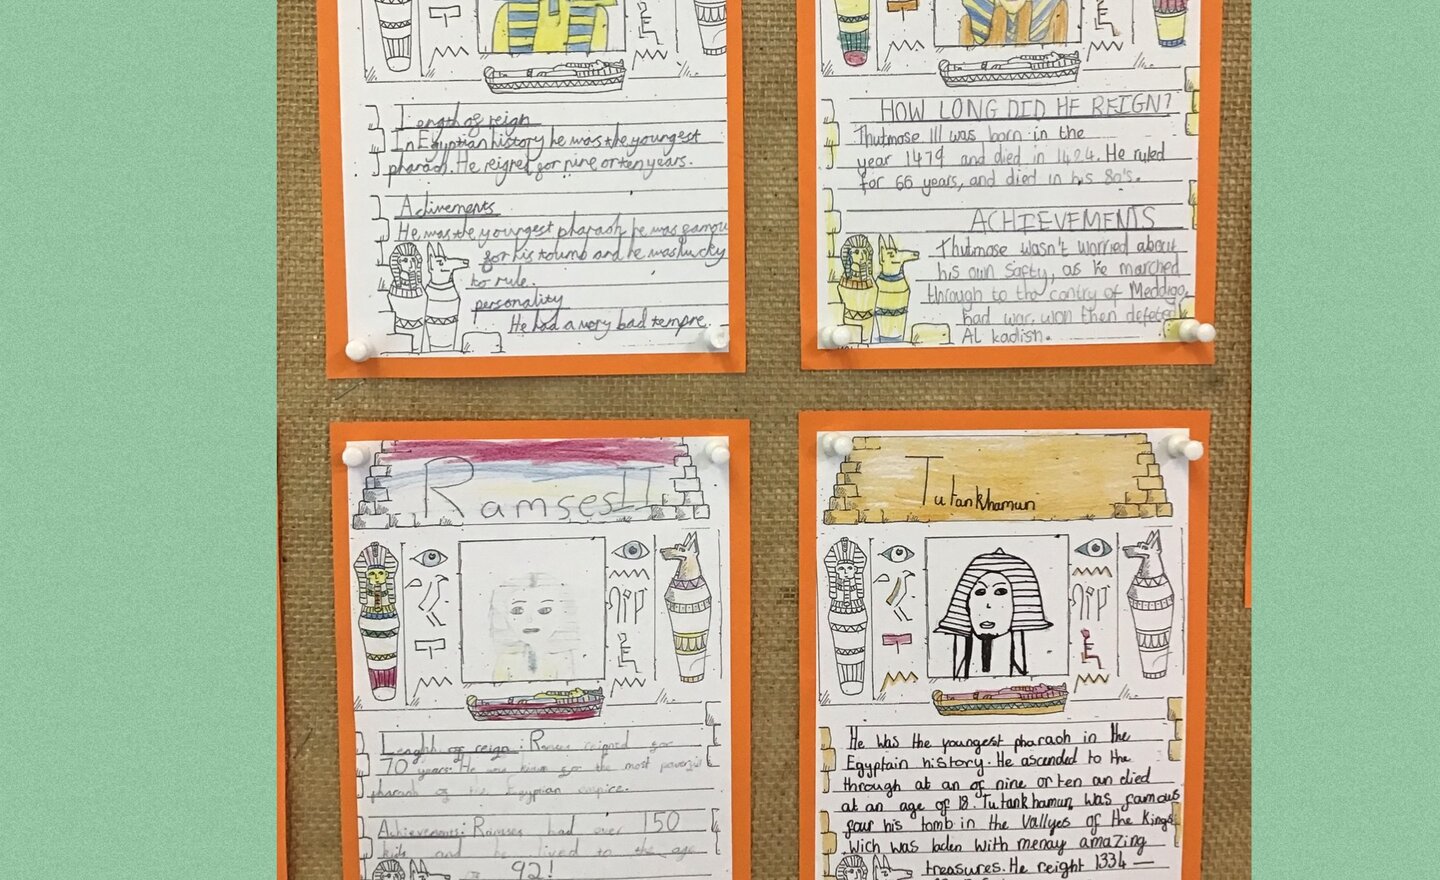 Length of reign
In Egyptian history he was the youngest
pharaoh. He reigned for nine or ten years.
Achivements
He was the youngest pharaoh he was famou
for his toumb and he was lucky
to rule.
personality
He had a very bad tempre.
HOW LONG DID HE REIGN?
Thutmose III was born in the
year 1479 and died in 1424. He ruled
for 66 years, and died in his 80's.
ACHIEVEMENTS
Thutmose wasn't worried about
his own safty, as he marched
through to the contry of Meddigo,
had war, won then defeted
Al kadish.
Ramses II
Lenghh of reign: Ramses reigned for
70 years. He was known for the most powerful
pharaoh of the Egyptian empire.
Achievements: Ramses had over 150
kids and he lived to the age
92!
Tutankhamun
He was the youngest pharaoh in the
Egyptain history. He ascended to the
through at an of nine or ten an died
at an age of 18. Tutankhamun was famous
four his tomb in the Vallyes of the Kings
Wich was laden with menay amazing
treasures. He reight 1334 —